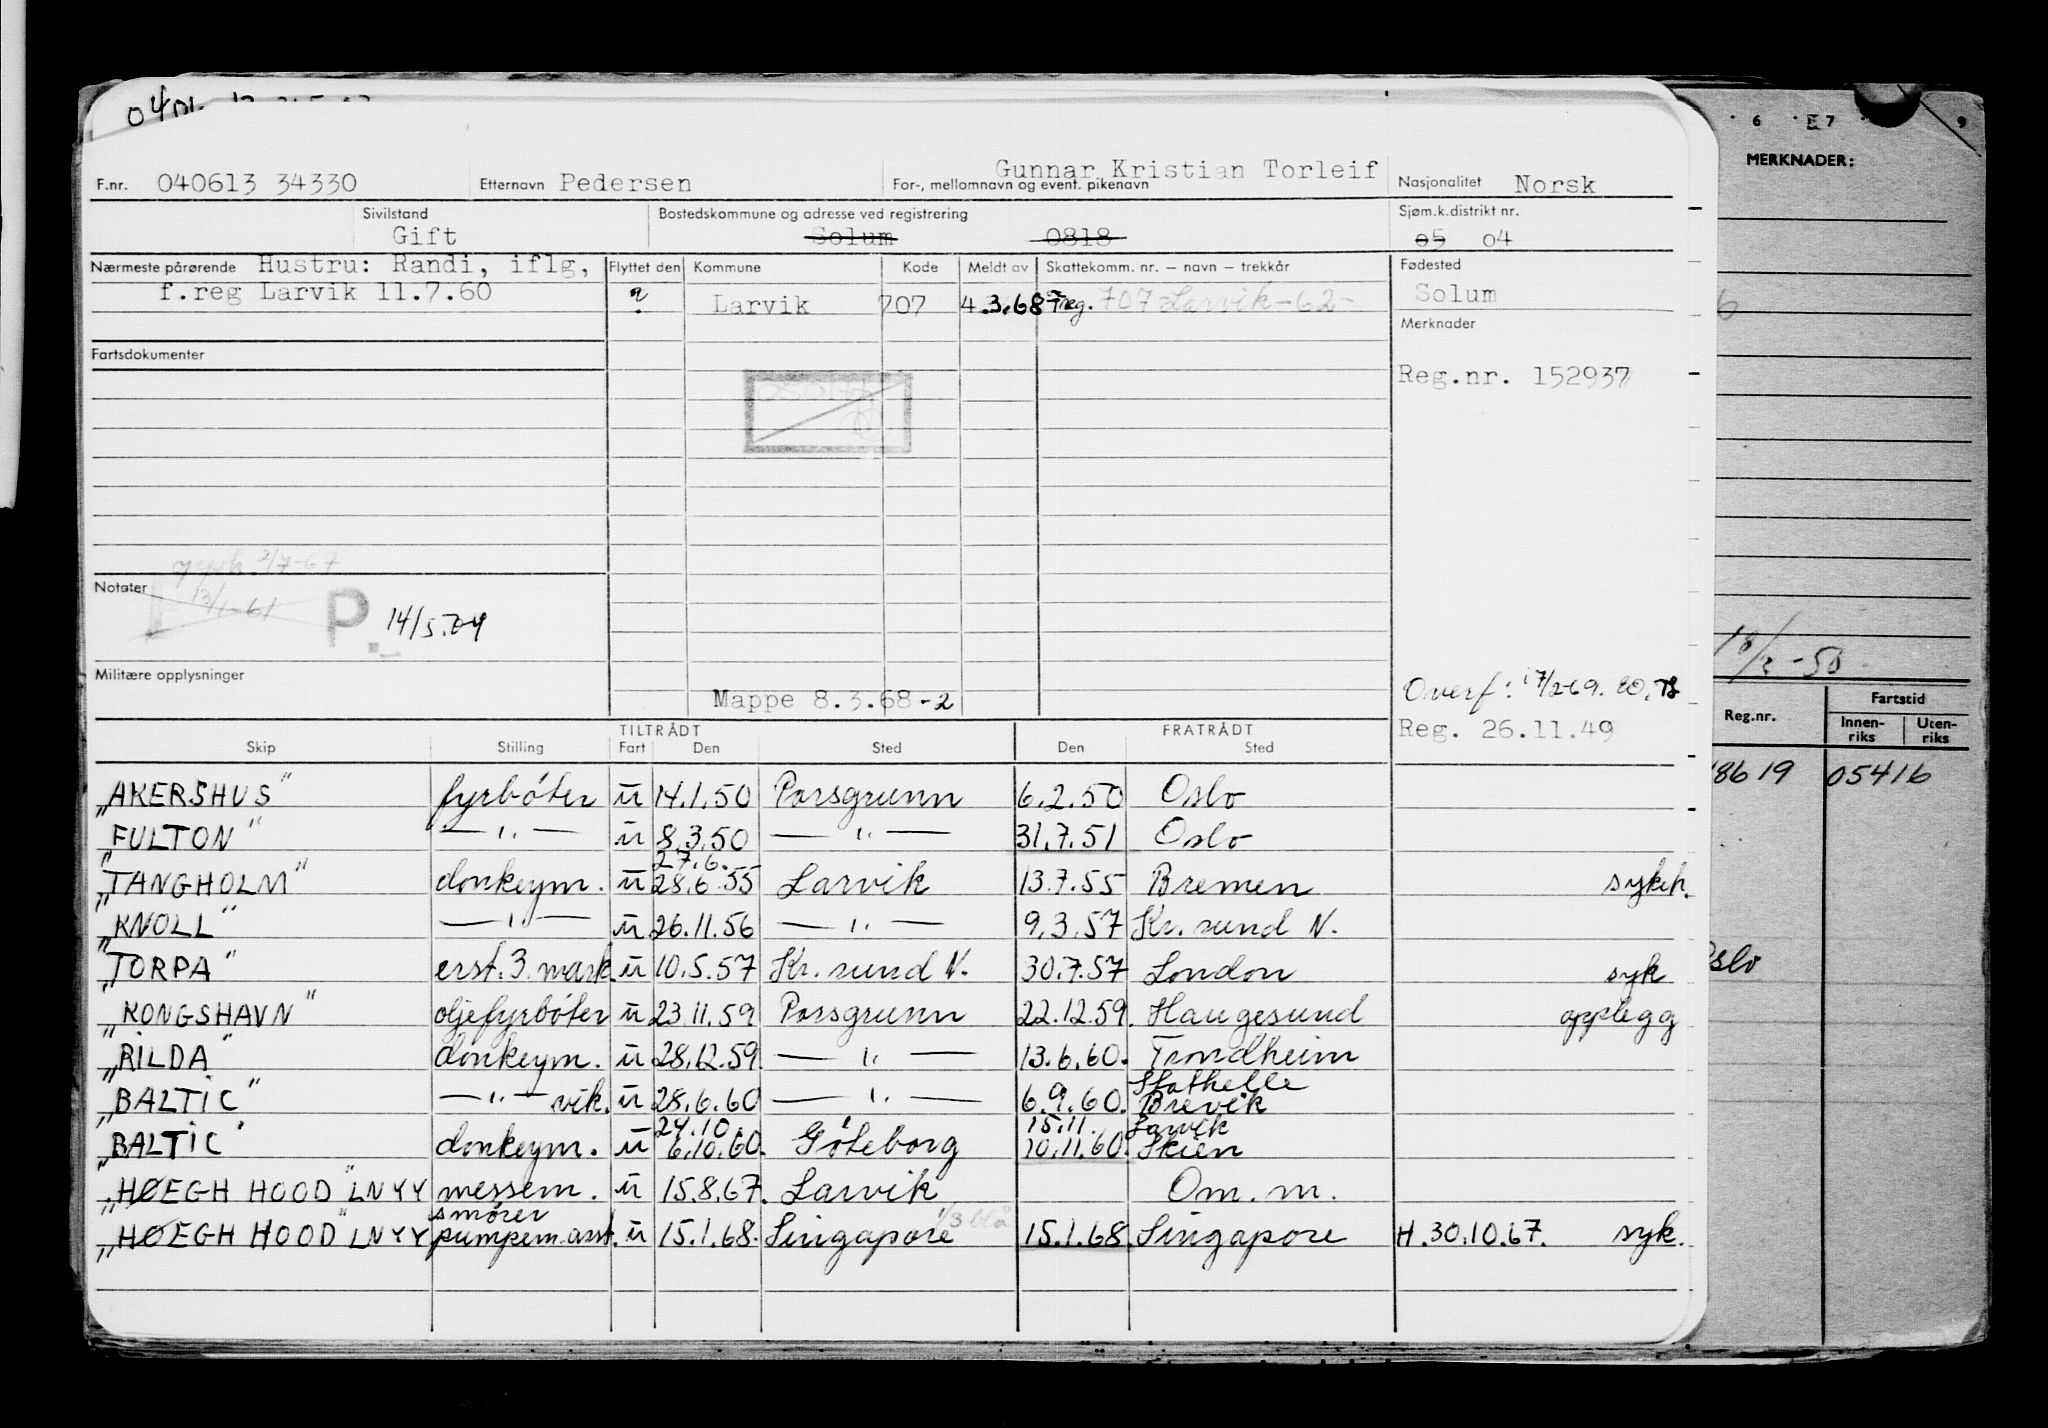 Gunnar Kristian Torleif
F.nr. 040613 34330 Etternavn Pedersen For-, mellomnavn og event. pikenavn Nasjonalitet Norsk
Sivilstand Bostedskommune og adresse ved registrering Sjøm.k.distrikt nr.
Gift Solum 0818 05 04
Nærmeste pårørende Hustru: Randi, iflg, Flyttet den Kommune Kode Meldt av Skattekomm. nr. – navn – trekkår Fødested
f.reg Larvik 11.7.60 ? Larvik 707 4.3.68 F.reg. 707 Larvik-62- Solum
Merknader
Fartsdokumenter
Reg.nr. 152937
2/7-67
Notater 13/1-61
P. 14/5.
Militære opplysninger
Mappe 8.3.68-2 Overf: 17/2-69.
Reg. 26.11.49
TILTRÅDT FRATRÅDT
Skip Stilling Fart Den Sted Den Sted
„AKERSHUS" fyrbóter u 14.1.50 Porsgrunn 6.2.50 Oslo
„FULTON" —"— u 8.3.50 —"— 31.7.51 Oslo
27.6.
„TANGHOLM" donkeym. u 28.6.55 Larvik 13.7.55 Bremen sykeh.
„KNOLL" —"— u 26.11.56 —"— 9.3.57 Kr.sund N.
„TORPA" erst.3.mask. u 10.5.57 Kr.sund N. 30.7.57 London syk
„KONGSHAVN" oljefyrbóter u 23.11.59 Porsgrunn 22.12.59. Haugesund opplegg
„RILDA" donkeym. u 28.12.59. —"— 13.6.60. Trondheim
Stathelle
„BALTIC" —"— vik. u 28.6.60 —"— 6.9.60. Brevik
24.10. 15.11. Larvik
„BALTIC" donkeym. u 6.10.60. Góteborg 10.11.60. Skien
„HØEGH HOOD" LNYY messem. u 15.8.67. Larvik Om.m.
smører 1/3 blå
„HØEGH HOOD" LNYY pumpem.asst. u 15.1.68. Singapore 15.1.68. Singapore H.30.10.67. syk.
6 7 9
MERKNADER:
18/2-50
Reg.nr. Fartstid
Innen-riks Uten-riks
18619 05416
Oslo